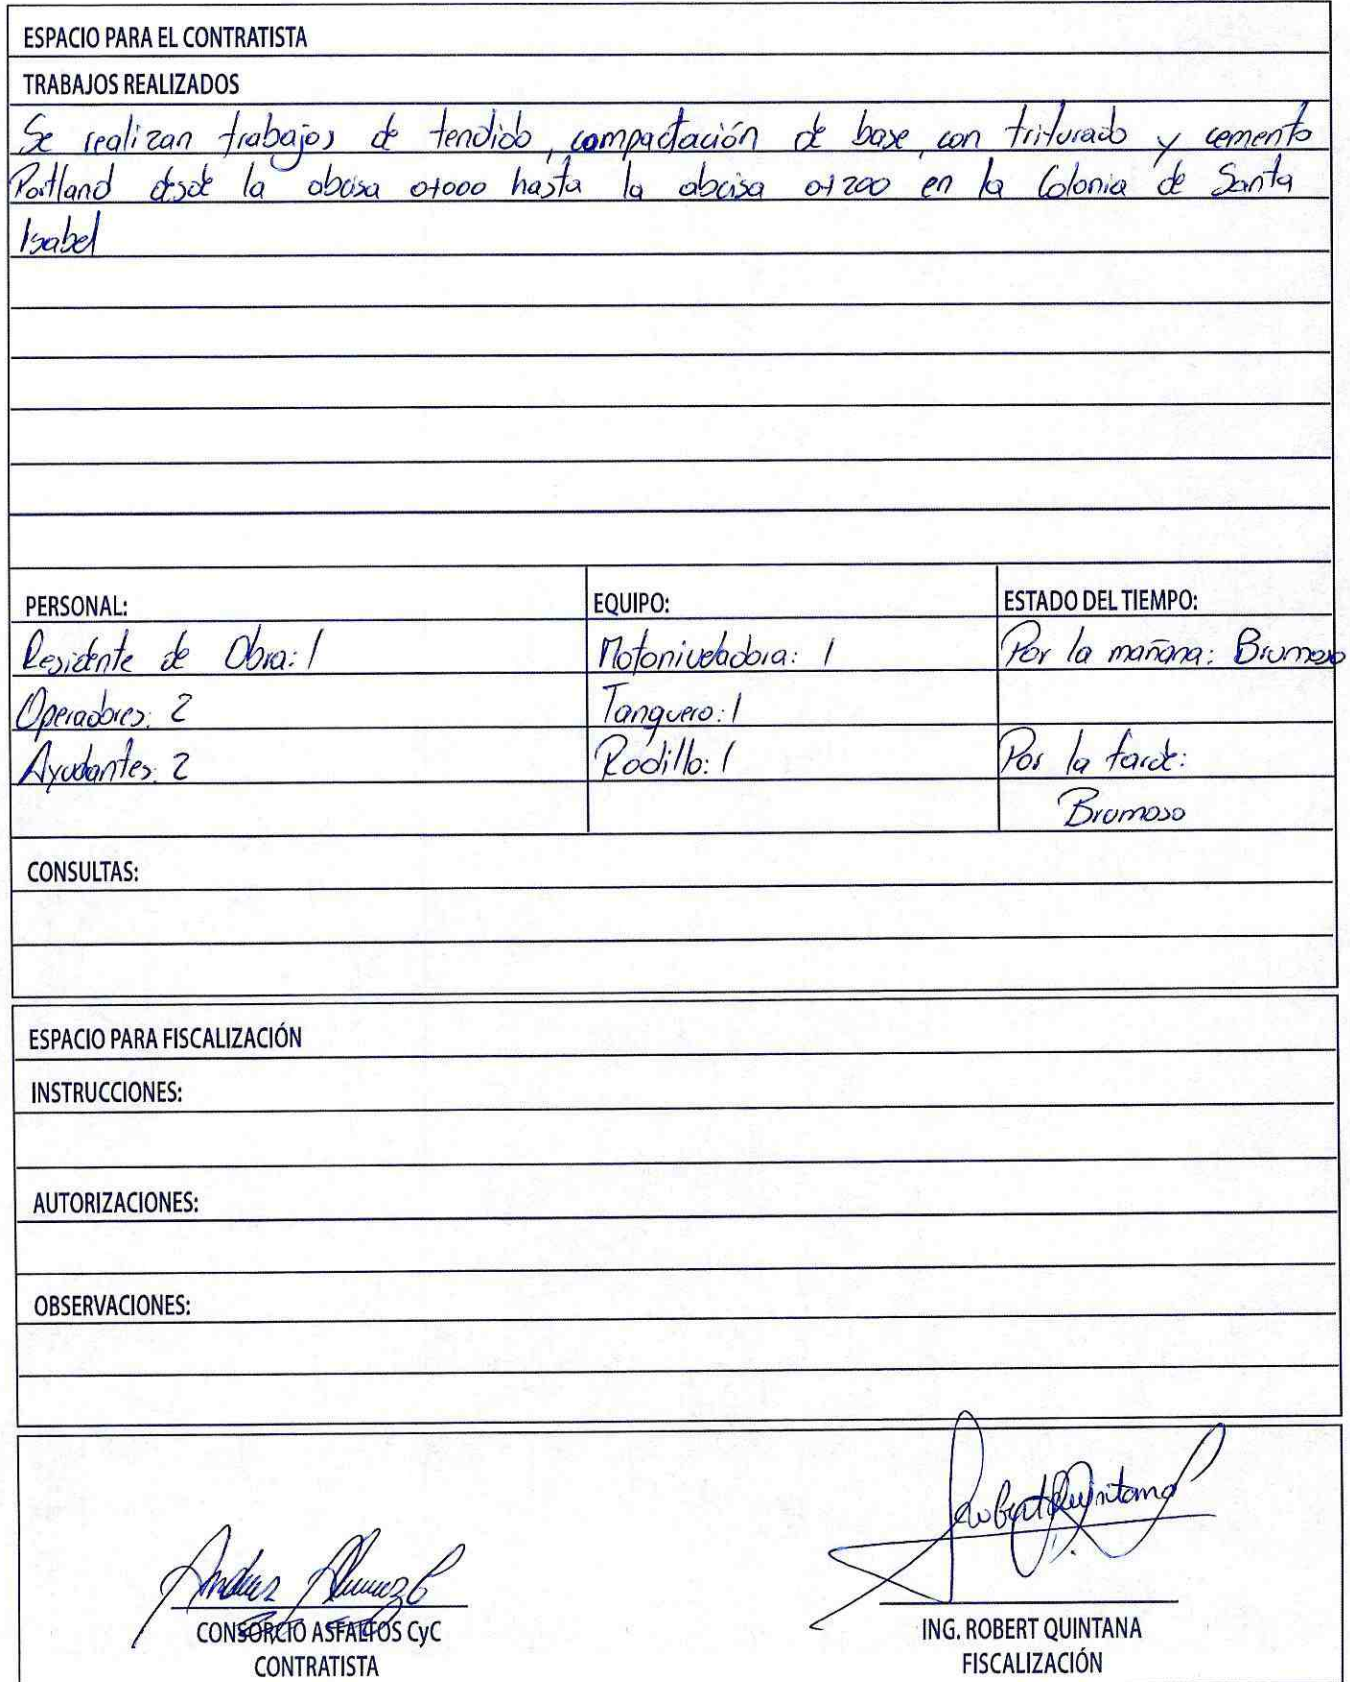 ESPACIO PARA EL CONTRATISTA
TRABAJOS REALIZADOS
Se realizan trabajos de tendido, compactación de base, con triturado y cemento
Portland desde la abcisa 0+000 hasta la abcisa 0+200 en la Colonia de Santa
Isabel
PERSONAL: EQUIPO: ESTADO DEL TIEMPO:
Residente de Obra: 1 Motoniveladora: 1 Por la mañana: Brumoso
Operadores: 2 Tanquero: 1
Ayudantes: 2 Rodillo: 1 Por la tarde:
Brumoso
CONSULTAS:
ESPACIO PARA FISCALIZACIÓN
INSTRUCCIONES:
AUTORIZACIONES:
OBSERVACIONES:
Robert Quintana
CONSORCIO ASFALTOS CyC ING. ROBERT QUINTANA
CONTRATISTA FISCALIZACIÓN